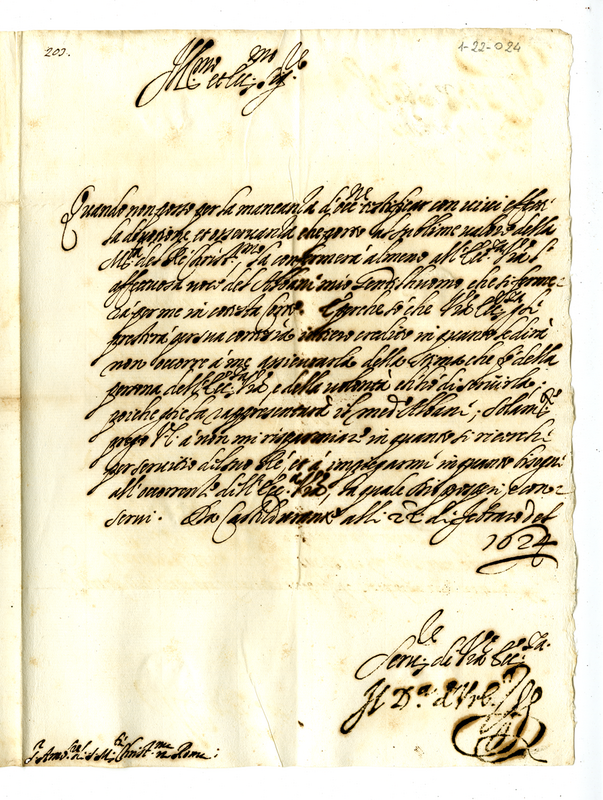 203.
1-22-024
Ill.mo et Ecc.mo Sig.re
Quando non posso per la mancanza d'occ.ne testificar con vivi effetti
la devotione, et osservanza che porto in sublime della
M.tà del Rè Christ.mo la confermerà almeno all' Ecc.za V.ra l'
affettuosa voce del Albani mio Gentilhuomo, che si ferme-
rà per me in cotesta Corte. E perche sò che V.ra Ecc.za gli
presterà per sua cortesia intiero credito in quanto le dirà
non occorre à me assicurarla della stima che fò della
persona dell' Ecc.za V.ra, e della volontà che hò di servirla;
poiche questa rappresenterà il med.mo Albani; Solam.te
prego V.E. à non mi risparmiare in quanto si ricerchi
per servitio di Suo Rè, et à impiegarmi in quanto bisogni
all'occorrenze di V. Ecc.za, la quale Dio prosperi, e con-
servi. Da Casteldurante alli 22 di Febraro del
1624
Ser.re di V.ra Ecc.za
Il D.a d'Urb.
S.r Amb.re di S. M.tà Christ.ma in Roma;